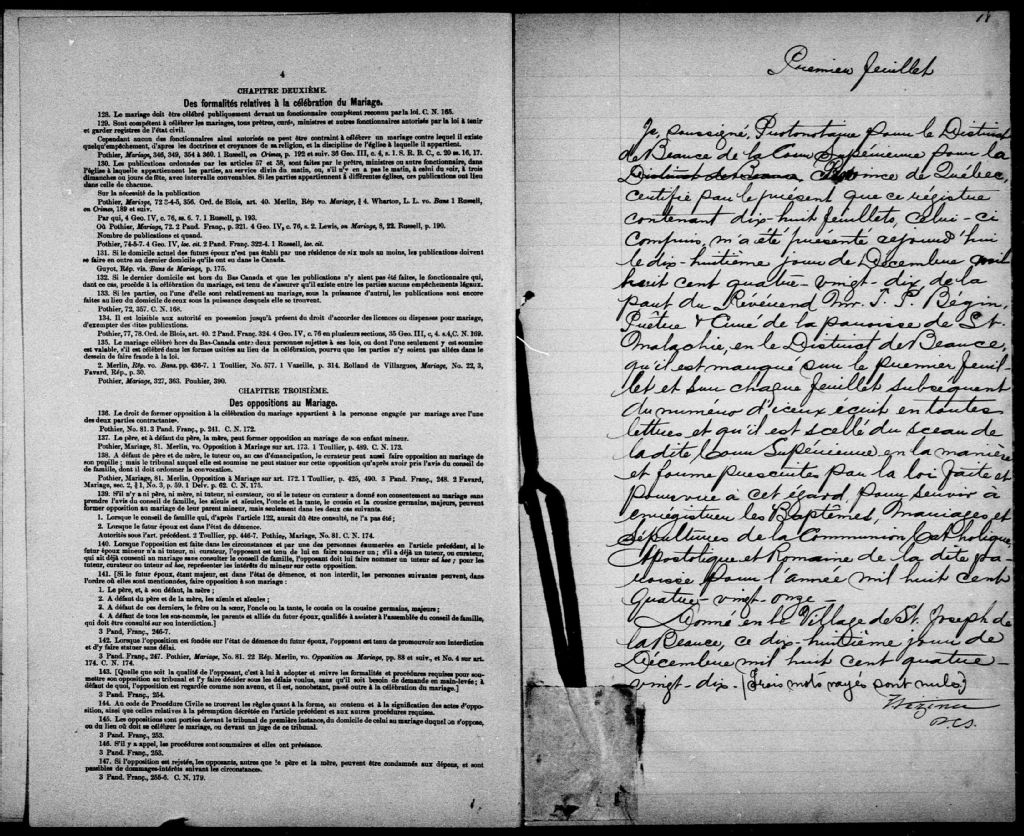 4
CHAPITRE DEUXIÈME.
Des formalités relatives à la célébration du Mariage.
128. Le mariage doit être célébré publiquement devant un fonctionnaire compétent reconnu par la loi. C. N. 165.
129. Sont compétents à célébrer les mariages, tous prêtres, curés, ministres et autres fonctionnaires autorisés par la loi à tenir
et garder registres de l'état civil.
Cependant aucun des fonctionnaires ainsi autorisés ne peut être contraint à célébrer un mariage contre lequel il existe
quelqu'empêchement, d'après les doctrines et croyances de sa religion, et la discipline de l'église à laquelle il appartient.
Pothier, Mariage, 346, 349, 354 à 360. 1 Russell, on Crimes, p. 192 et suiv. 36 Geo. III, c. 4, s. 1. S. R. B. C., c. 20 ss. 16, 17.
130. Les publications ordonnées par les articles 57 et 58, sont faites par le prêtre, ministre ou autre fonctionnaire, dans
l'église à laquelle appartiennent les parties, au service divin du matin, ou, s'il n'y en a pas le matin, à celui du soir, à trois
dimanches ou jours de fête, avec intervalle convenables. Si les parties appartiennent à différentes églises, ces publications ont lieu
dans celle de chacune.
Sur la nécessité de la publication
Pothier, Mariage, 72 3-4-5, 356. Ord. de Blois, art. 40. Merlin, Rép vo. Mariage, § 4. Wharton, L. L. vo. Bans 1 Russell,
on Crimes, 189 et suiv.
Par qui, 4 Geo. IV, c. 76, ss. 6. 7. 1 Russell, p. 193.
Où Pothier, Mariage, 72. 2 Pand. Franç., p. 321. 4 Geo. IV, c. 76, s. 2. Lewis, on Mariage, 8, 22. Russell, p. 190.
Nombre de publications et quand.
Pothier, 74-8-7. 4 Geo. IV, loc. cit. 2 Pand. Franç. 322-4. 1 Russell, loc. cit.
131. Si le domicile actuel des futurs époux n'est pas établi par une résidence de six mois au moins, les publications doivent
se faire en outre au dernier domicile qu'ils ont eu dans le Canada.
Guyot, Rép. vis. Bans de Mariage, p. 175.
132. Si le dernier domicile est hors du Bas Canada et que les publications n'y aient pas été faites, le fonctionnaire qui,
dans ce cas, procède à la célébration du mariage, est tenu de s'assurer qu'il existe entre les parties aucuns empêchements légaux.
133. Si les parties, ou l'une d'elle sont relativement au mariage, sous la puissance d'autrui, les publications sont encore
faites au lieu du domicile de ceux sous la puissance desquels elle se trouvent.
Pothier, 72, 357. C. N. 168.
134. Il est loisible aux autorité en possession jusqu'à présent du droit d'accorder des licences ou dispenses pour mariage,
d'exempter des dites publications.
Pothier, 77, 78. Ord. de Blois, art. 40. 2 Pand. Franç. 324. 4 Geo. IV, c. 76 en plusieurs sections, 35 Geo. III, c, 4. s.4,C. N. 169.
135. Le mariage célébré hors du Bas-Canada entre deux personnes sujettes à ses lois, ou dont l'une seulement y est soumise
est valable, s'il est célébré dans les formes usitées au lieu de la célébration, pourvu que les parties n'y soient pas allées dans le
dessein de faire fraude à la loi.
2. Merlin, Rép. vo. Bans. pp. 436-7. 1 Toullier, No. 577. 1 Vazeille, p. 314. Rolland de Villargues, Mariage, No. 22, 3,
Favard, Rép., p. 30.
Pothier, Mariage, 327, 363. Pouhier, 390.
CHAPITRE TROISIÈME.
Des oppositions au Mariage.
136. Le droit de former opposition à la célébration du mariage appartient à la personne engagée par mariage avec l'une
des deux parties contractantes.
Pothier, No. 81. 3 Pand. Franç., p. 241. C. N. 172.
137. Le père, et à défaut du père, la mère, peut former opposition au mariage de son enfant mineur.
Pothier, Mariage, 81. Merlin, vo. Opposition à Mariage sur art. 173. 1 Toullier, p. 489. C. N. 173.
138. A défaut de père et de mère, le tuteur ou, au cas d'émancipation, le curateur peut aussi faire opposition au mariage de
son pupille ; mais le tribunal auquel elle est soumise ne peut statuer sur cette opposition qu'après avoir pris l'avis du conseil de
famille, dont il doit ordonner la convocation.
Pothier, Mariage, 81. Merlin, Opposition à Mariage sur art. 172. 1 Toullier, p. 425, 490. 3 Pand. Franç., 248. 2 Favard,
Mariage, sec. 2, § 1, No. 3, p. 59. 1 Delv. p. 62. C. N. 175.
139. S'il n'y a ni père, ni mère, ni tuteur, ni curateur, ou si le tuteur ou curateur a donné son consentement au mariage sans
prendre l'avis du conseil de famille, les aïeuls et aïeules, l'oncle et la tante, le cousin et la cousine germains, majeurs, peuvent
former opposition au mariage de leur parent mineur, mais seulement dans les deux cas suivants.
1. Lorsque le conseil de famille qui, d'après l'article 122, aurait dû être consulté, ne l'a pas été ;
2. Lorsque le futur époux est dans l'état de démence.
Autorités sous l'art. précédent. 2 Toullier, pp. 446-7. Pothier, Mariage, No. 81. C. N. 174.
140. Lorsque l'opposition est faite dans les circonstances et par une des personnes énumérées en l'article précédent, si le
futur époux mineur n'a ni tuteur, ni curateur, l'opposant est tenu de lui en faire nommer un ; s'il a déjà un tuteur, ou curateur,
qui ait déjà consenti au mariage sans consulter le conseil de famille, l'opposant doit lui faire nommer un tuteur ad hoc ; pour les
tuteur, curateur ou tuteur ad hoc, représenter les intérêts du mineur sur cette opposition.
141. [Si le futur époux, étant majeur, est dans l'état de démence, et non interdit, les personnes suivantes peuvent, dans
l'ordre où elles sont mentionnées, faire opposition à son mariage :
1. Le père, et, à son défaut, la mère ;
2. A défaut du père et de la mère, les aïeuls et aïeules ;
3. A défaut de ces derniers, le frère ou la sœur, l'oncle ou la tante, le cousin ou la cousine germains, majeurs ;
4. A défaut de tous les sus-nommés, les parents et alliés du futur époux, qualifiés à assister à l'assemblée du conseil de famille,
qui doit être consulté sur son interdiction.]
3 Pand, Franç., 246-7.
142. Lorsque l'opposition est fondée sur l'état de démence du futur époux, l'opposant est tenu de promouvoir son interdiction
et d'y faire statuer sans délai.
3 Pand. Franç., 247. Pothier, Mariage, No. 81. 22 Rép. Merlin, vo. Opposition au Mariage, pp 88 et suiv., et No. 4 sur art.
174. C. N. 174.
143. [Quelle que soit la qualité de l'opposant, c'est à lui à adopter et suivre les formalités et procédures requises pour sou-
mettre son opposition au tribunal et l'y faire décider sous les délais voulus, sans qu'il soit besoin de demande en main-levée ; à
défaut de quoi, l'opposition est regardée comme non avenue, et il est, nonobstant, passé outre à la célébration du mariage.]
3 Pand. Franç., 254.
144. Au code de Procédure Civile se trouvent les règles quant à la forme, au contenu et à la signification des actes d'oppo-
sition, ainsi que celles relatives à la péremption décrétée en l'article précédent et aux autres procédures requises.
145. Les oppositions sont portées devant le tribunal de première instance, du domicile de celui au mariage duquel on s'oppose,
ou du lieu où doit se célébrer le mariage, ou devant un juge de ce tribunal.
3 Pand. Franç., 253.
146. S'il y a appel, les procédures sont sommaires et elles ont préséance.
3 Pand. Franç., 253.
147. Si l'opposition est rejetée, les opposants, autres que le père et la mère, peuvent être condamnés aux dépens, et sont
passibles de dommages-intérêts suivant les circonstances.
3 Pand. Franç., 255-6. C. N. 179.
Premier feuillet
Je, soussigné, Protonotaire pour le District
de Beauce de la Cour Supérieure pour la
District de Beauce Province de Québec,
certifie par le présent que ce régistre
contenant dix-huit feuillets, celui-ci
compris, m'a été présenté cejourd'hui
le dix-huitième jour de Décembre mil
huit cent quatre-vingt-dix, de la
part du Révérend Mr. T. P. Bégin,
Prêtre & Curé de la paroisse de St.
Malachie, en le District de Beauce,
qu'il est marqué sur le premier feuil-
let et sur chaque feuillet subséquent
du numéro d'iceux écrit en toutes
lettres et qu'il est scellé du sceau de
la dite Cour Supérieure en la manière
et forme prescrites par la loi faite et
pourvue à cet égard, pour servir à
enregistrer les Baptêmes, Mariages et
Sépultures de la Communion Catholique,
Apostolique et Romaine de la dite pa-
roisse, pour l'année mil huit cent
quatre-vingt-onze-
Donné en le Village de St. Joseph de
la Beauce, ce dix-huitième jour de
Décembre mil huit cent quatre-
vingt-dix. (Trois mots rayés sont nuls.)
P.C.S.